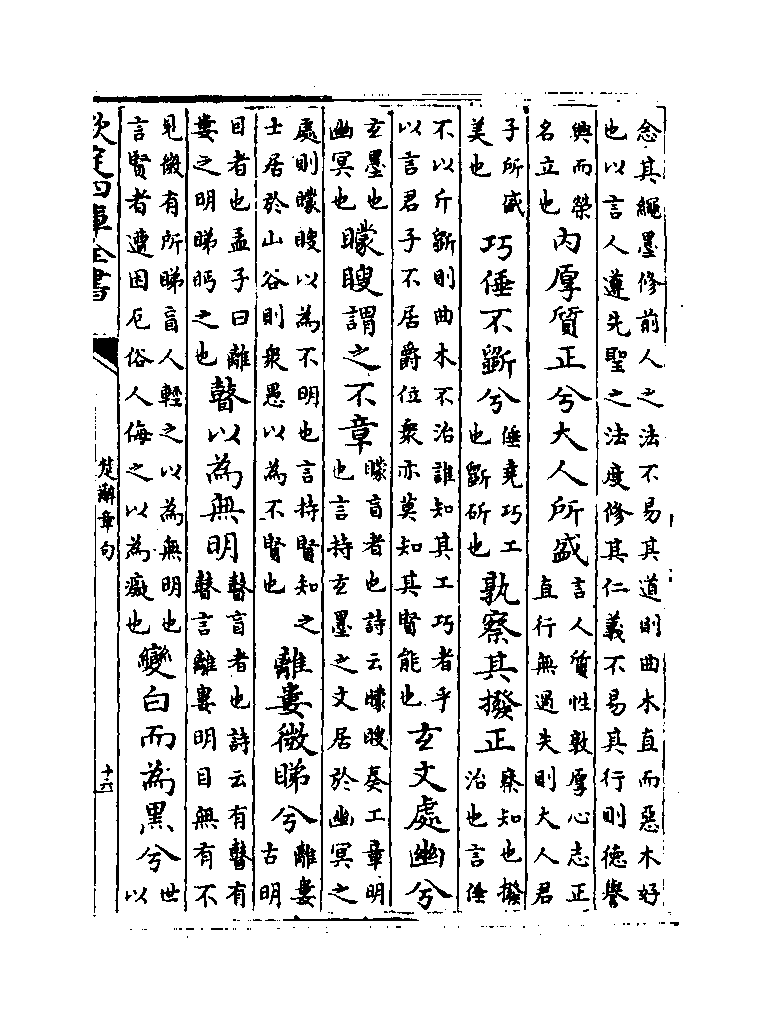 念其繩墨修前人之法不易其道則曲木直而惡木好
也以言人遵先聖之法度修其仁義不易其行則德譽
興而榮名立也內厚質正兮大人所盛言人質性敦厚心志正直行無過失則大人君
子所盛美也巧倕不斲兮倕堯巧工也斲斫也孰察其撥正察知也撥治也言倕
不以斤斲則曲木不治誰知其工巧者乎以言君子不居爵位衆亦莫知其賢能也玄文處幽兮
玄墨也幽冥也矇瞍謂之不章矇盲者也詩云矇瞍奏工章明也言持玄墨之文居於幽冥之
處則矇瞍以為不明也言持賢知之士居於山谷則衆愚以為不賢也離婁微睇兮離婁古明
目者也孟子曰離婁之明睇眄之也瞽以為無明瞽盲者也詩云有瞽有瞽言離婁明目無有不
見微有所睇盲人輕之以為無明也言賢者遭困厄俗人侮之以為癡也變白而為黑兮世以
欽定四庫全書
楚辭章句
十六